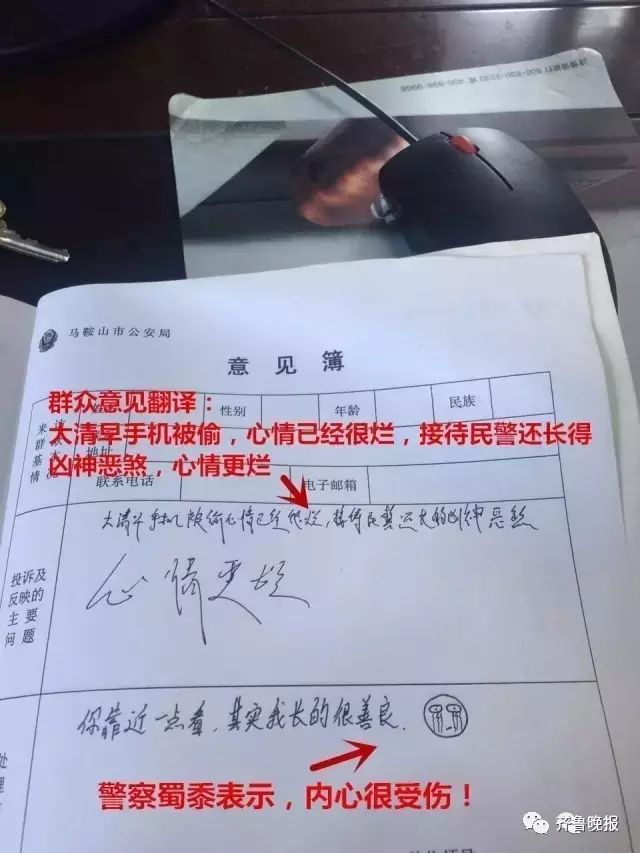 马鞍山市公安局
意见簿
性别
年龄
民族
群众意见翻译：
大清早手机被偷，心情已经很烂，接待民警还长得
凶神恶煞，心情更烂
联系电话
电子邮箱
大清早手机被偷心情已经很烂，接待民警还长的凶神恶煞
心情更烂
投诉及
反映的
主要
问题
你靠近一点看，其实我长的很善良.
警察蜀黍表示，内心很受伤！
齐鲁晚报